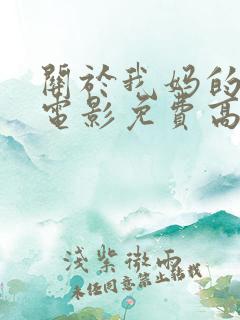 關於我妈的
電影免費高
淺紫微雨
未经同意禁止转载